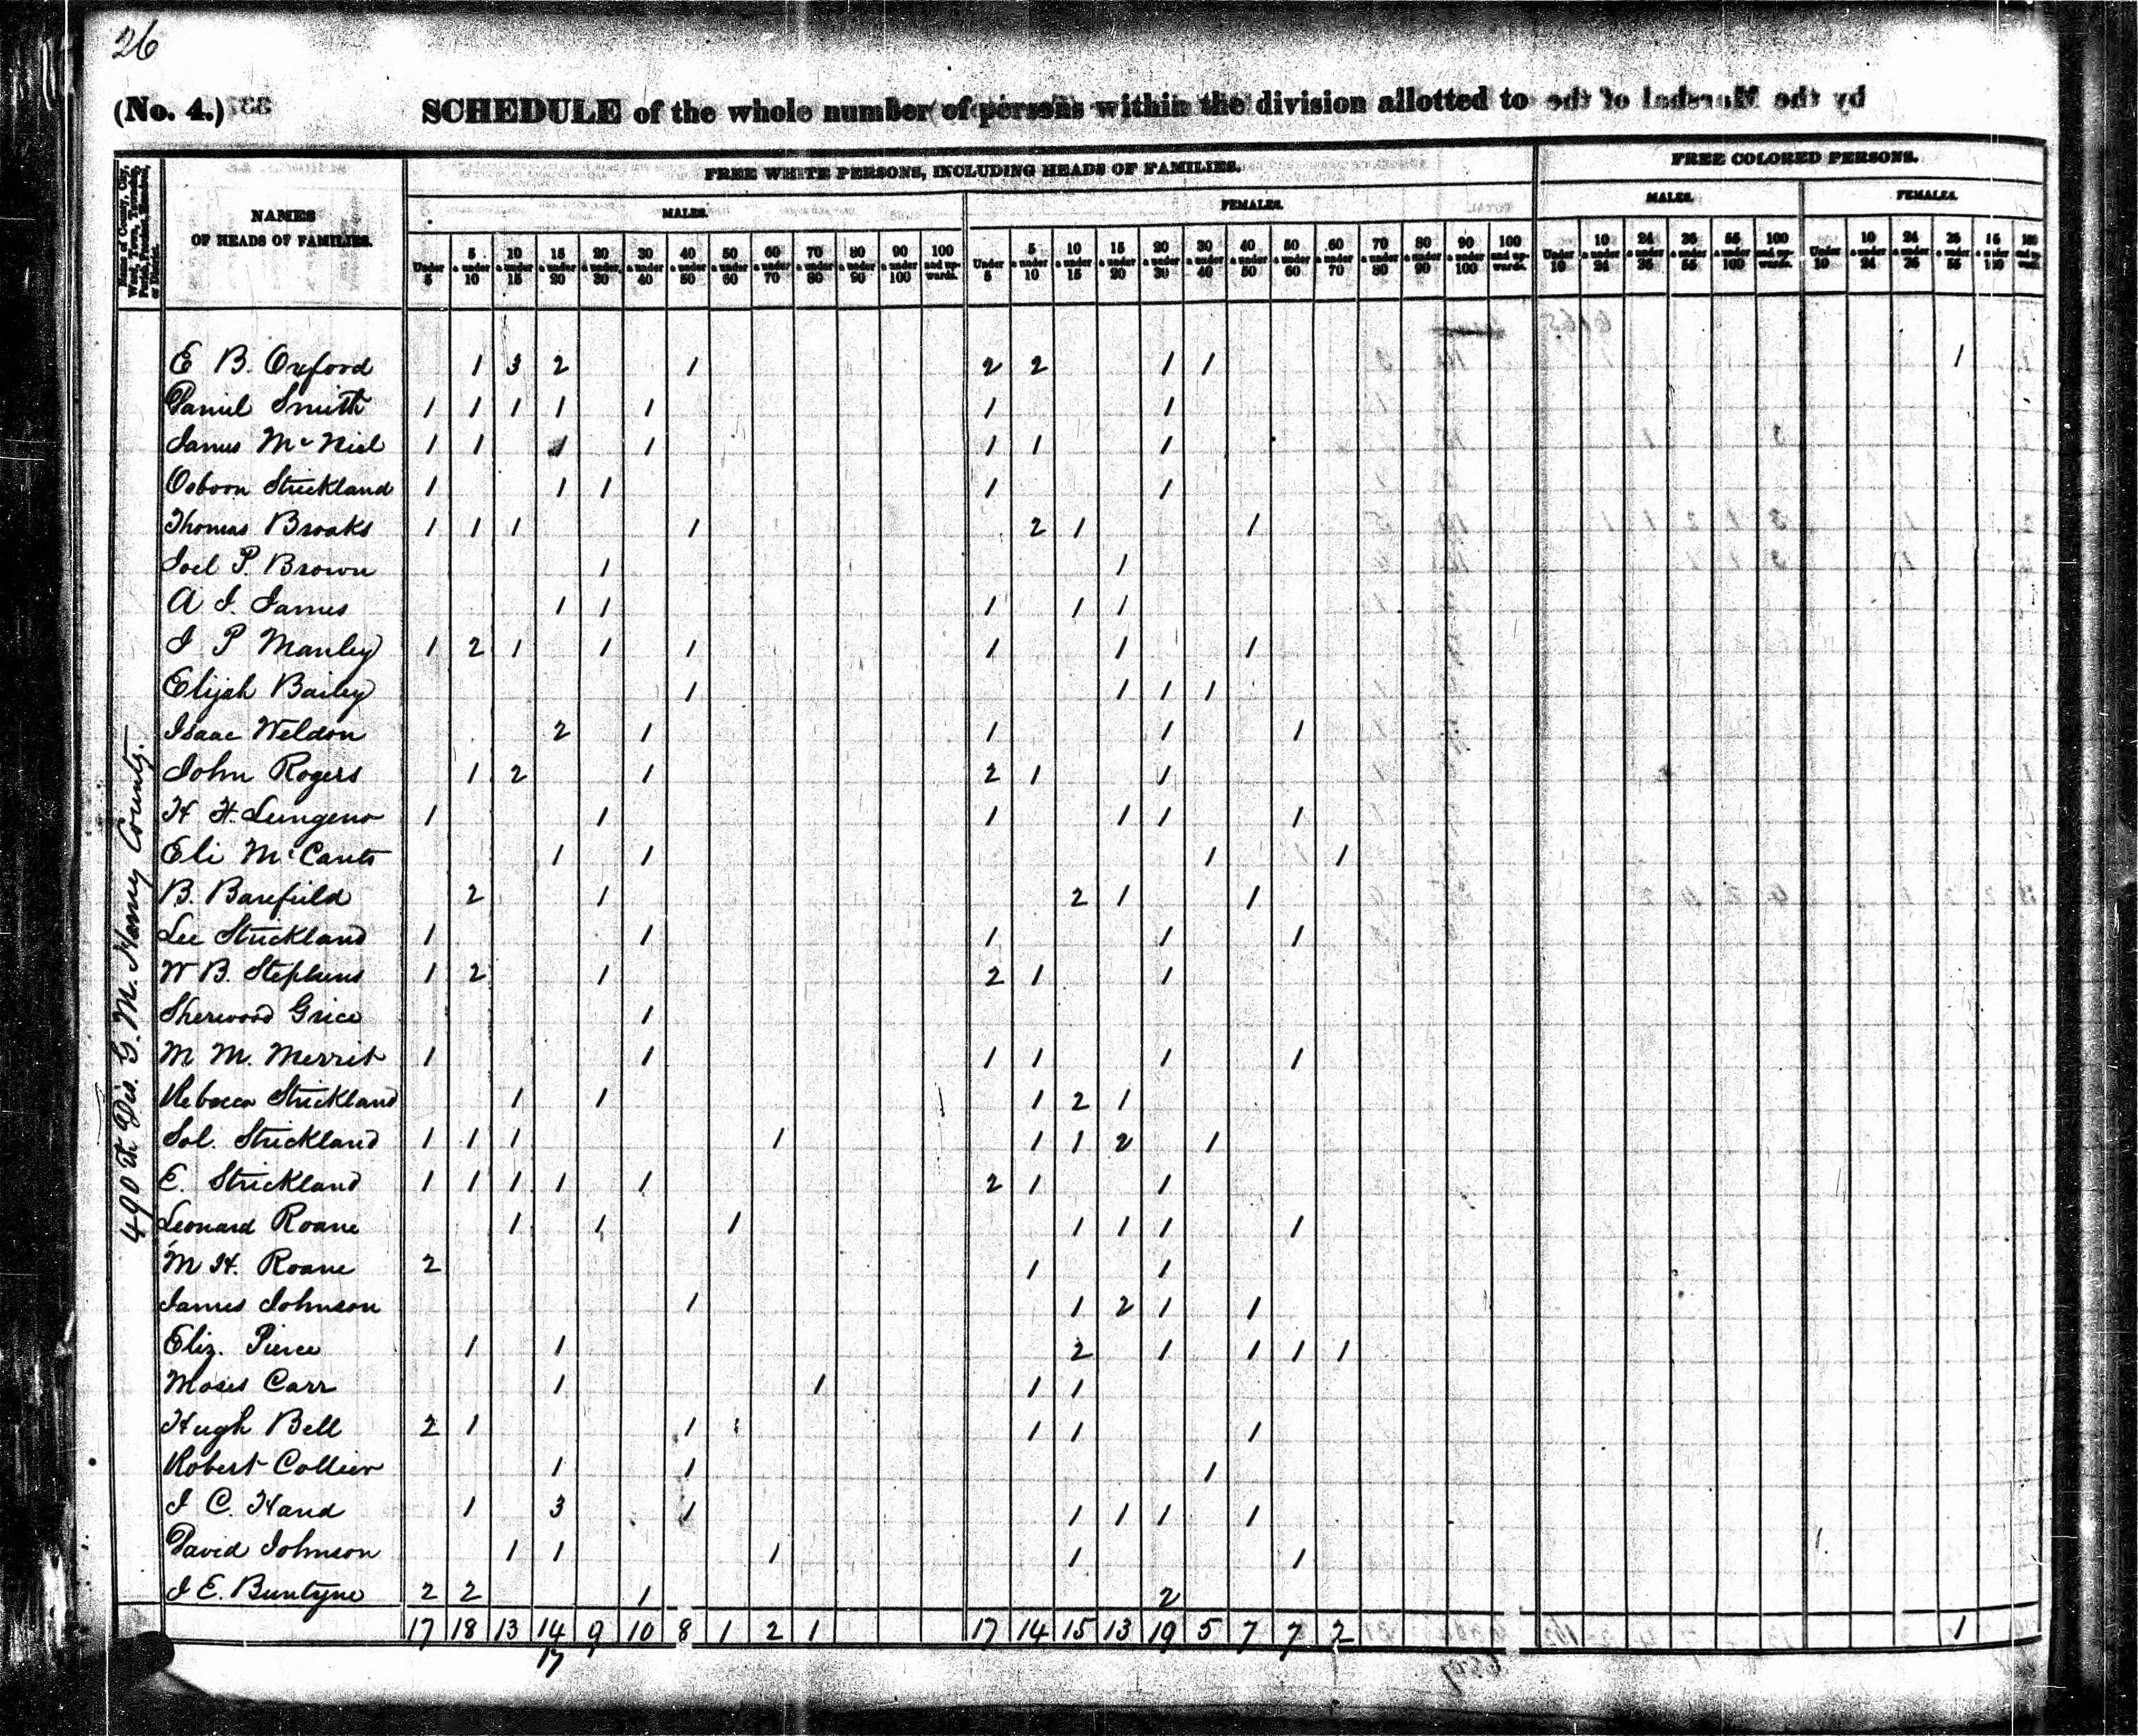 26
(No. 4.) SCHEDULE of the whole number of persons within the division allotted to by the Marshal of the
FREE WHITE PERSONS, INCLUDING HEADS OF FAMILIES. FREE COLORED PERSONS.
MALES. FEMALES. MALES. FEMALES.
NAMES
OF HEADS OF FAMILIES.
Under 5 5 & under 10 10 & under 15 15 & under 20 20 & under 30 30 & under 40 40 & under 50 50 & under 60 60 & under 70 70 & under 80 80 & under 90 90 & under 100 100 and upwards. Under 5 5 & under 10 10 & under 15 15 & under 20 20 & under 30 30 & under 40 40 & under 50 50 & under 60 60 & under 70 70 & under 80 80 & under 90 90 & under 100 100 and upwards. Under 10 10 & under 24 24 & under 36 36 & under 55 55 & under 100 100 and upwards. Under 10 10 & under 24 24 & under 36
490th Dis. G. M. County.
E B. Oxford 1 3 2 1 2 2 1 1 1
Daniel Smith 1 1 1 1 1 1 1
James McNiel 1 1 1 1 1 1 1
Osborn Strickland 1 1 1 1 1
Thomas Brooks 1 1 1 1 2 1 1
Joel P. Brown 1 1
A J. James 1 1 1 1 1
J P Manley 1 2 1 1 1 1 1 1
Elijah Bailey 1 1 1 1
Isaac Weldon 2 1 1 1 1
John Rogers 1 2 1 2 1 1
H H. 1 1 1 1 1 1
Eli McCants 1 1 1 1
B. Barefield 2 1 2 1 1
Lee Strickland 1 1 1 1 1
W B. Stephens 1 2 1 2 1 1
Sherwood Grice 1
M M. Merrit 1 1 1 1 1 1
Rebecca Strickland 1 1 1 2 1
Sol. Strickland 1 1 1 1 1 1 2 1
E. Strickland 1 1 1 1 1 2 1 1
Leonard Roane 1 1 1 1 1 1 1
M H. Roane 2 1 1
James Johnson 1 1 2 1 1
Eliz. Pierce 1 1 2 1 1 1 1
Moses Carr 1 1 1 1
Hugh Bell 2 1 1 1 1 1
Robert Collier 1 1 1
J C. Hand 1 3 1 1 1 1 1
David Johnson 1 1 1 1 1
J E. Buntyne 2 2 1 2
17 18 13 14 9 10 8 1 2 1 17 14 15 13 19 5 7 7 2 1
17